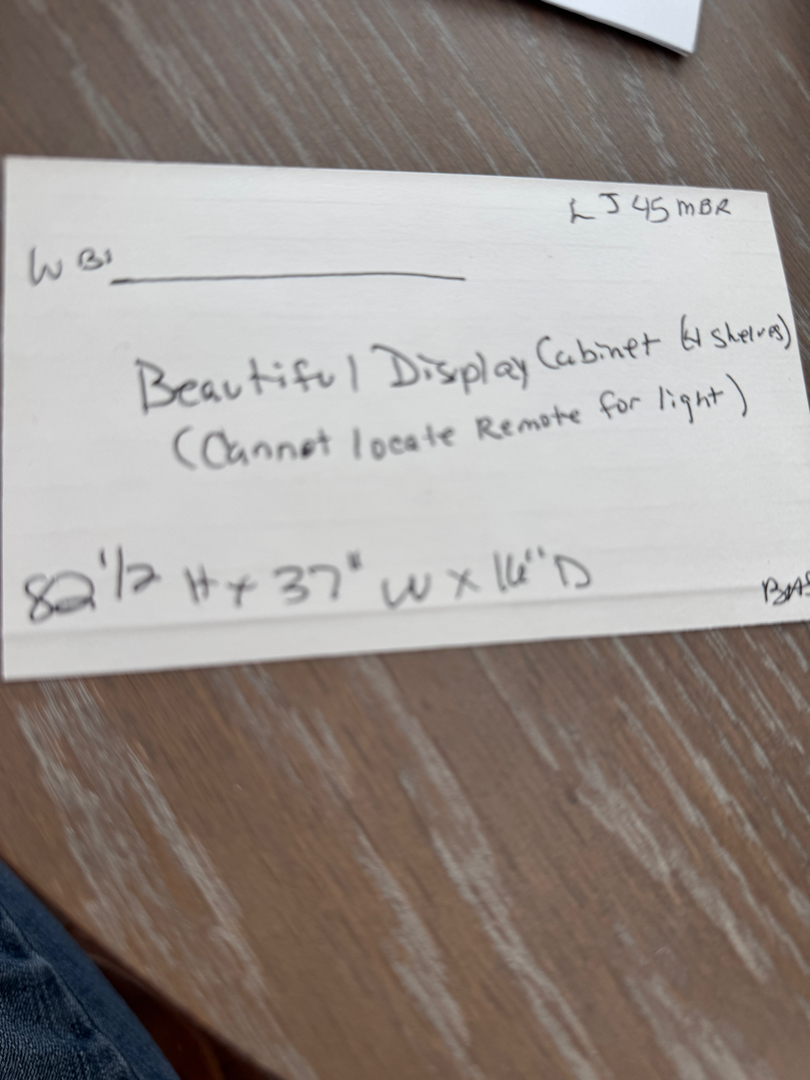 LJ 45 MBR
WB:
Beautiful Display Cabinet (4 shelves)
(Cannot locate Remote for light)
82 1/2 H x 37" W x 16" D